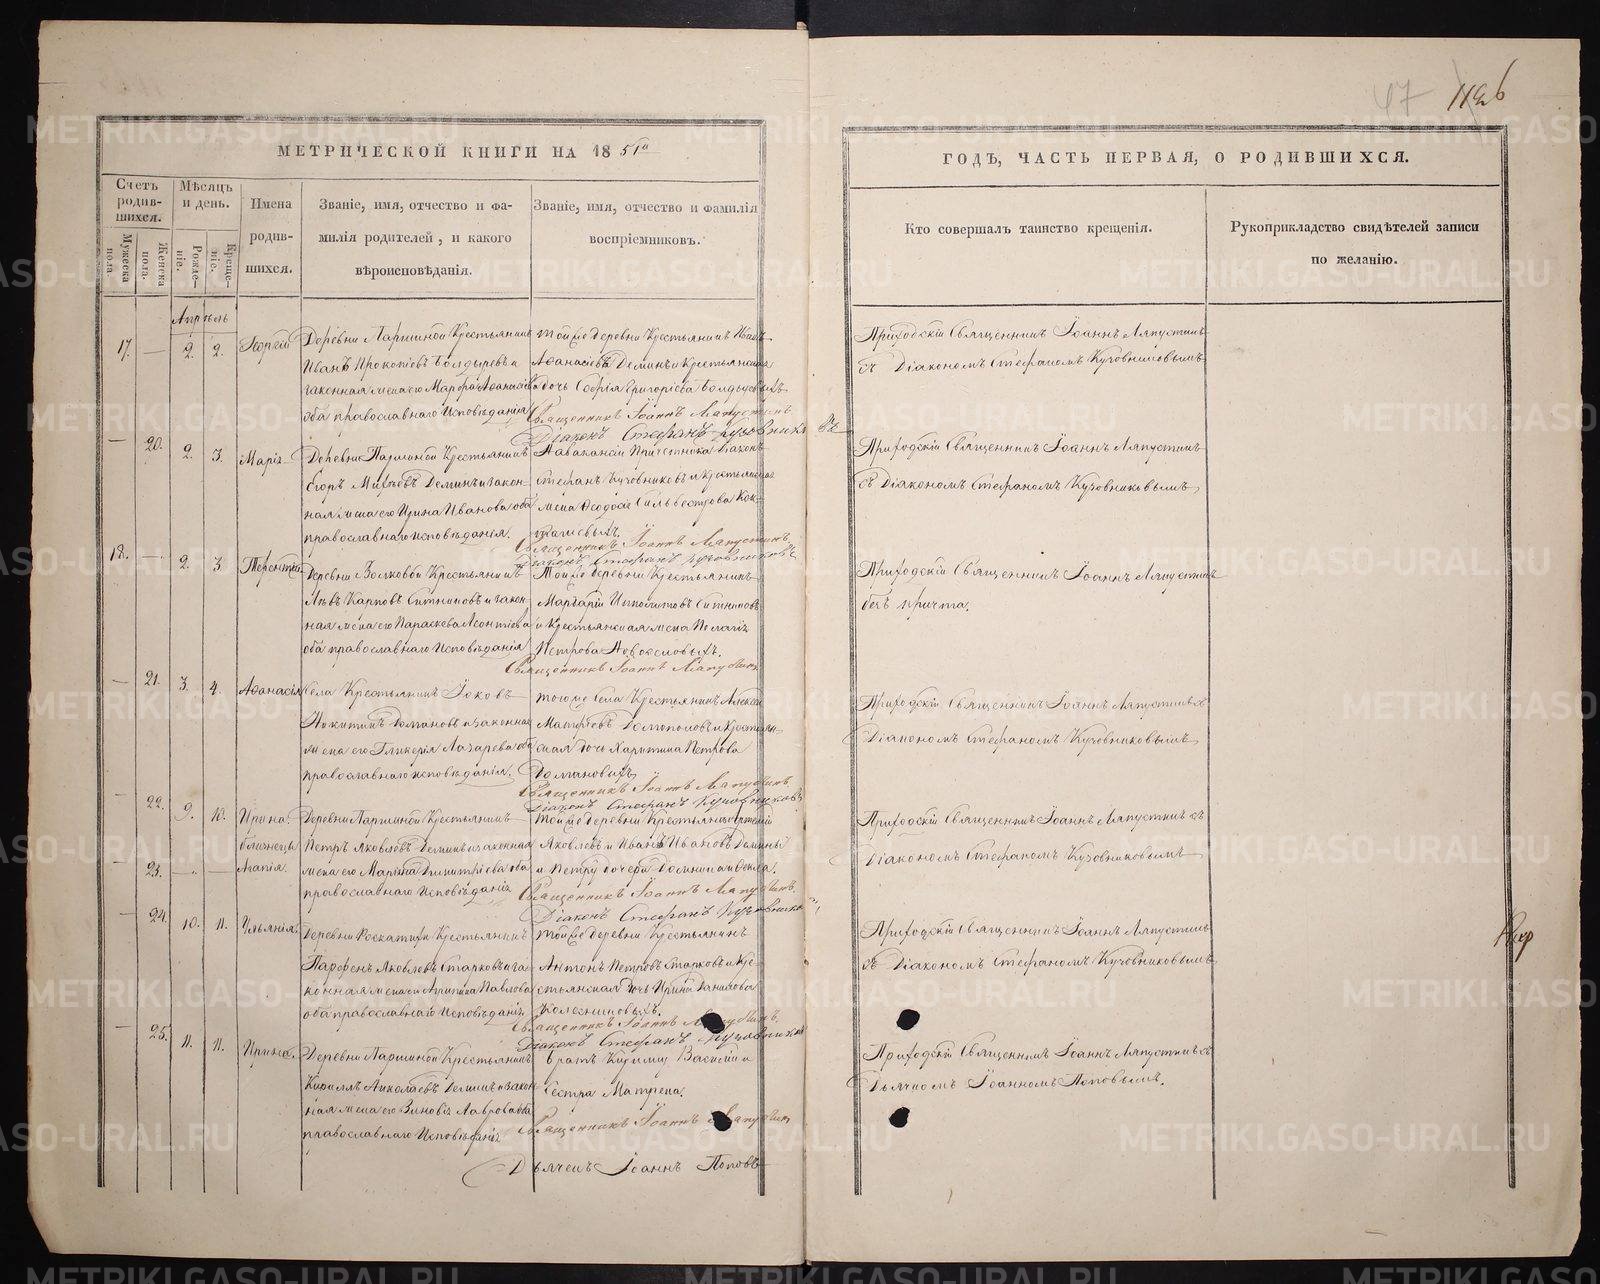 47 1126
МЕТРИЧЕСКОЙ КНИГИ НА 1851й
ГОДЪ, ЧАСТЬ ПЕРВАЯ, О РОДИВШИХСЯ.
Счетъ родив-шихся.
Мужеска пола.
Женска пола.
Мѣсяцъ и день.
Рожде-нiе.
Креще-нiе.
Имена родив-шихся.
Званiе, имя, отчество и фа-
милiя родителей, и какого
вѣроисповѣданiя.
Званiе, имя, отчество и фамилiя
воспрiемниковъ.
Кто совершалъ таинство крещенiя.
Рукоприкладство свидѣтелей записи
по желанiю.
Апрѣль
17. — 2. 2. Георгiй
Деревни Ларшиной Крестьянинъ
Иванъ Прокопiевъ Болдыревъ и
законная жена его Марфа Аѳанасiева
оба православнаго Исповѣданiя
Тойже деревни Крестьянинъ Иванъ
Аѳанасiевъ Деминъ и Крестьянская
дочь Софiя Григорiева Болдыревыхъ
Священникъ Iоаннъ Ляпустинъ
Дiаконъ Стефанъ Кузовниковъ
Приходскiй Священникъ Iоаннъ Ляпустинъ
съ Дiакономъ Стефаномъ Кузовниковымъ
— 20. 2. 3. Марiя
Деревни Ларшиной Крестьянинъ
Егоръ Деминъ и закон-
ная жена его Ирина Иванова оба
православнаго исповѣданiя.
Стефанъ Кузовниковъ и крестьянская
жена Ѳеодосiя Сильвестрова
Священникъ Iоаннъ Ляпустинъ
Дiаконъ Стефанъ Кузовниковъ
Приходскiй Священникъ Iоаннъ Ляпустинъ
съ Дiакономъ Стефаномъ Кузовниковымъ
18. — 2. 3. Терентiй
Деревни Волковой Крестьянинъ
Левъ Карповъ Ситниковъ и закон-
ная жена его Параскева Леонтiева
оба православнаго Исповѣданiя
Тойже деревни Крестьянинъ
Маркарiй Ипполитовъ Ситниковъ
и Крестьянская жена Пелагiя
Петрова Новоселовыхъ.
Священникъ Iоаннъ Ляпустинъ
Приходскiй Священникъ Iоаннъ Ляпустинъ
безъ причта.
— 21. 3. 4. Аѳанасiя
Села Крестьянинъ Iаковъ
Никитинъ Домановъ и законная
жена его Гликерiя Лазарева оба
православнаго исповѣданiя.
тогоже Села Крестьянинъ Алексѣй
и крестьян-
ская дочь Харитина Петрова
Домановыхъ
Священникъ Iоаннъ Ляпустинъ
Дiаконъ Стефанъ Кузовниковъ
Приходскiй Священникъ Iоаннъ Ляпустинъ съ
Дiакономъ Стефаномъ Кузовниковымъ
— 22. 9. 10. Ирина
близнецы
— 23. — — Агапiя.
Деревни Ларшиной Крестьянинъ
Петръ Яковлевъ Деминъ и законная
жена его Марiя Димитрiева оба
православнаго Исповѣданiя
Тойже деревни Крестьяне Артемiй
Яковлевъ и Иванъ Ивановъ Демины
и Петру дочери Домника и Ѳекла.
Священникъ Iоаннъ Ляпустинъ.
Дiаконъ Стефанъ Кузовниковъ
Приходскiй Священникъ Iоаннъ Ляпустинъ съ
Дiакономъ Стефаномъ Кузовниковымъ
— 24. 10. 11. Ульянiя.
Деревни Роскатихи Крестьянинъ
Парфенъ Яковлевъ Старковъ и за-
конная жена его Агрипина Павлова
оба православнаго Исповѣданiя
Тойже деревни Крестьянинъ
Антонъ Петровъ Старковъ и Кре-
стьянская дочь Ирина Данилова
Колесниковыхъ.
Священникъ Iоаннъ Ляпустинъ.
Дiаконъ Стефанъ Кузовниковъ
Приходскiй Священникъ Iоаннъ Ляпустинъ
съ Дiакономъ Стефаномъ Кузовниковымъ
— 25. 11. 11. Ирина.
Деревни Ларшиной Крестьянинъ
Кириллъ Николаевъ Деминъ и закон-
ная жена его Зиновiя Лаврова оба
православнаго Исповѣданiя
братъ Кирилу Василiй и
Сестра Матрена.
Священникъ Iоаннъ Ляпустинъ
Дьячекъ Iоаннъ Поповъ
Приходскiй Священникъ Iоаннъ Ляпустинъ съ
Дьячкомъ Iоанномъ Поповымъ.
METRIKI.GASO-URAL.RU